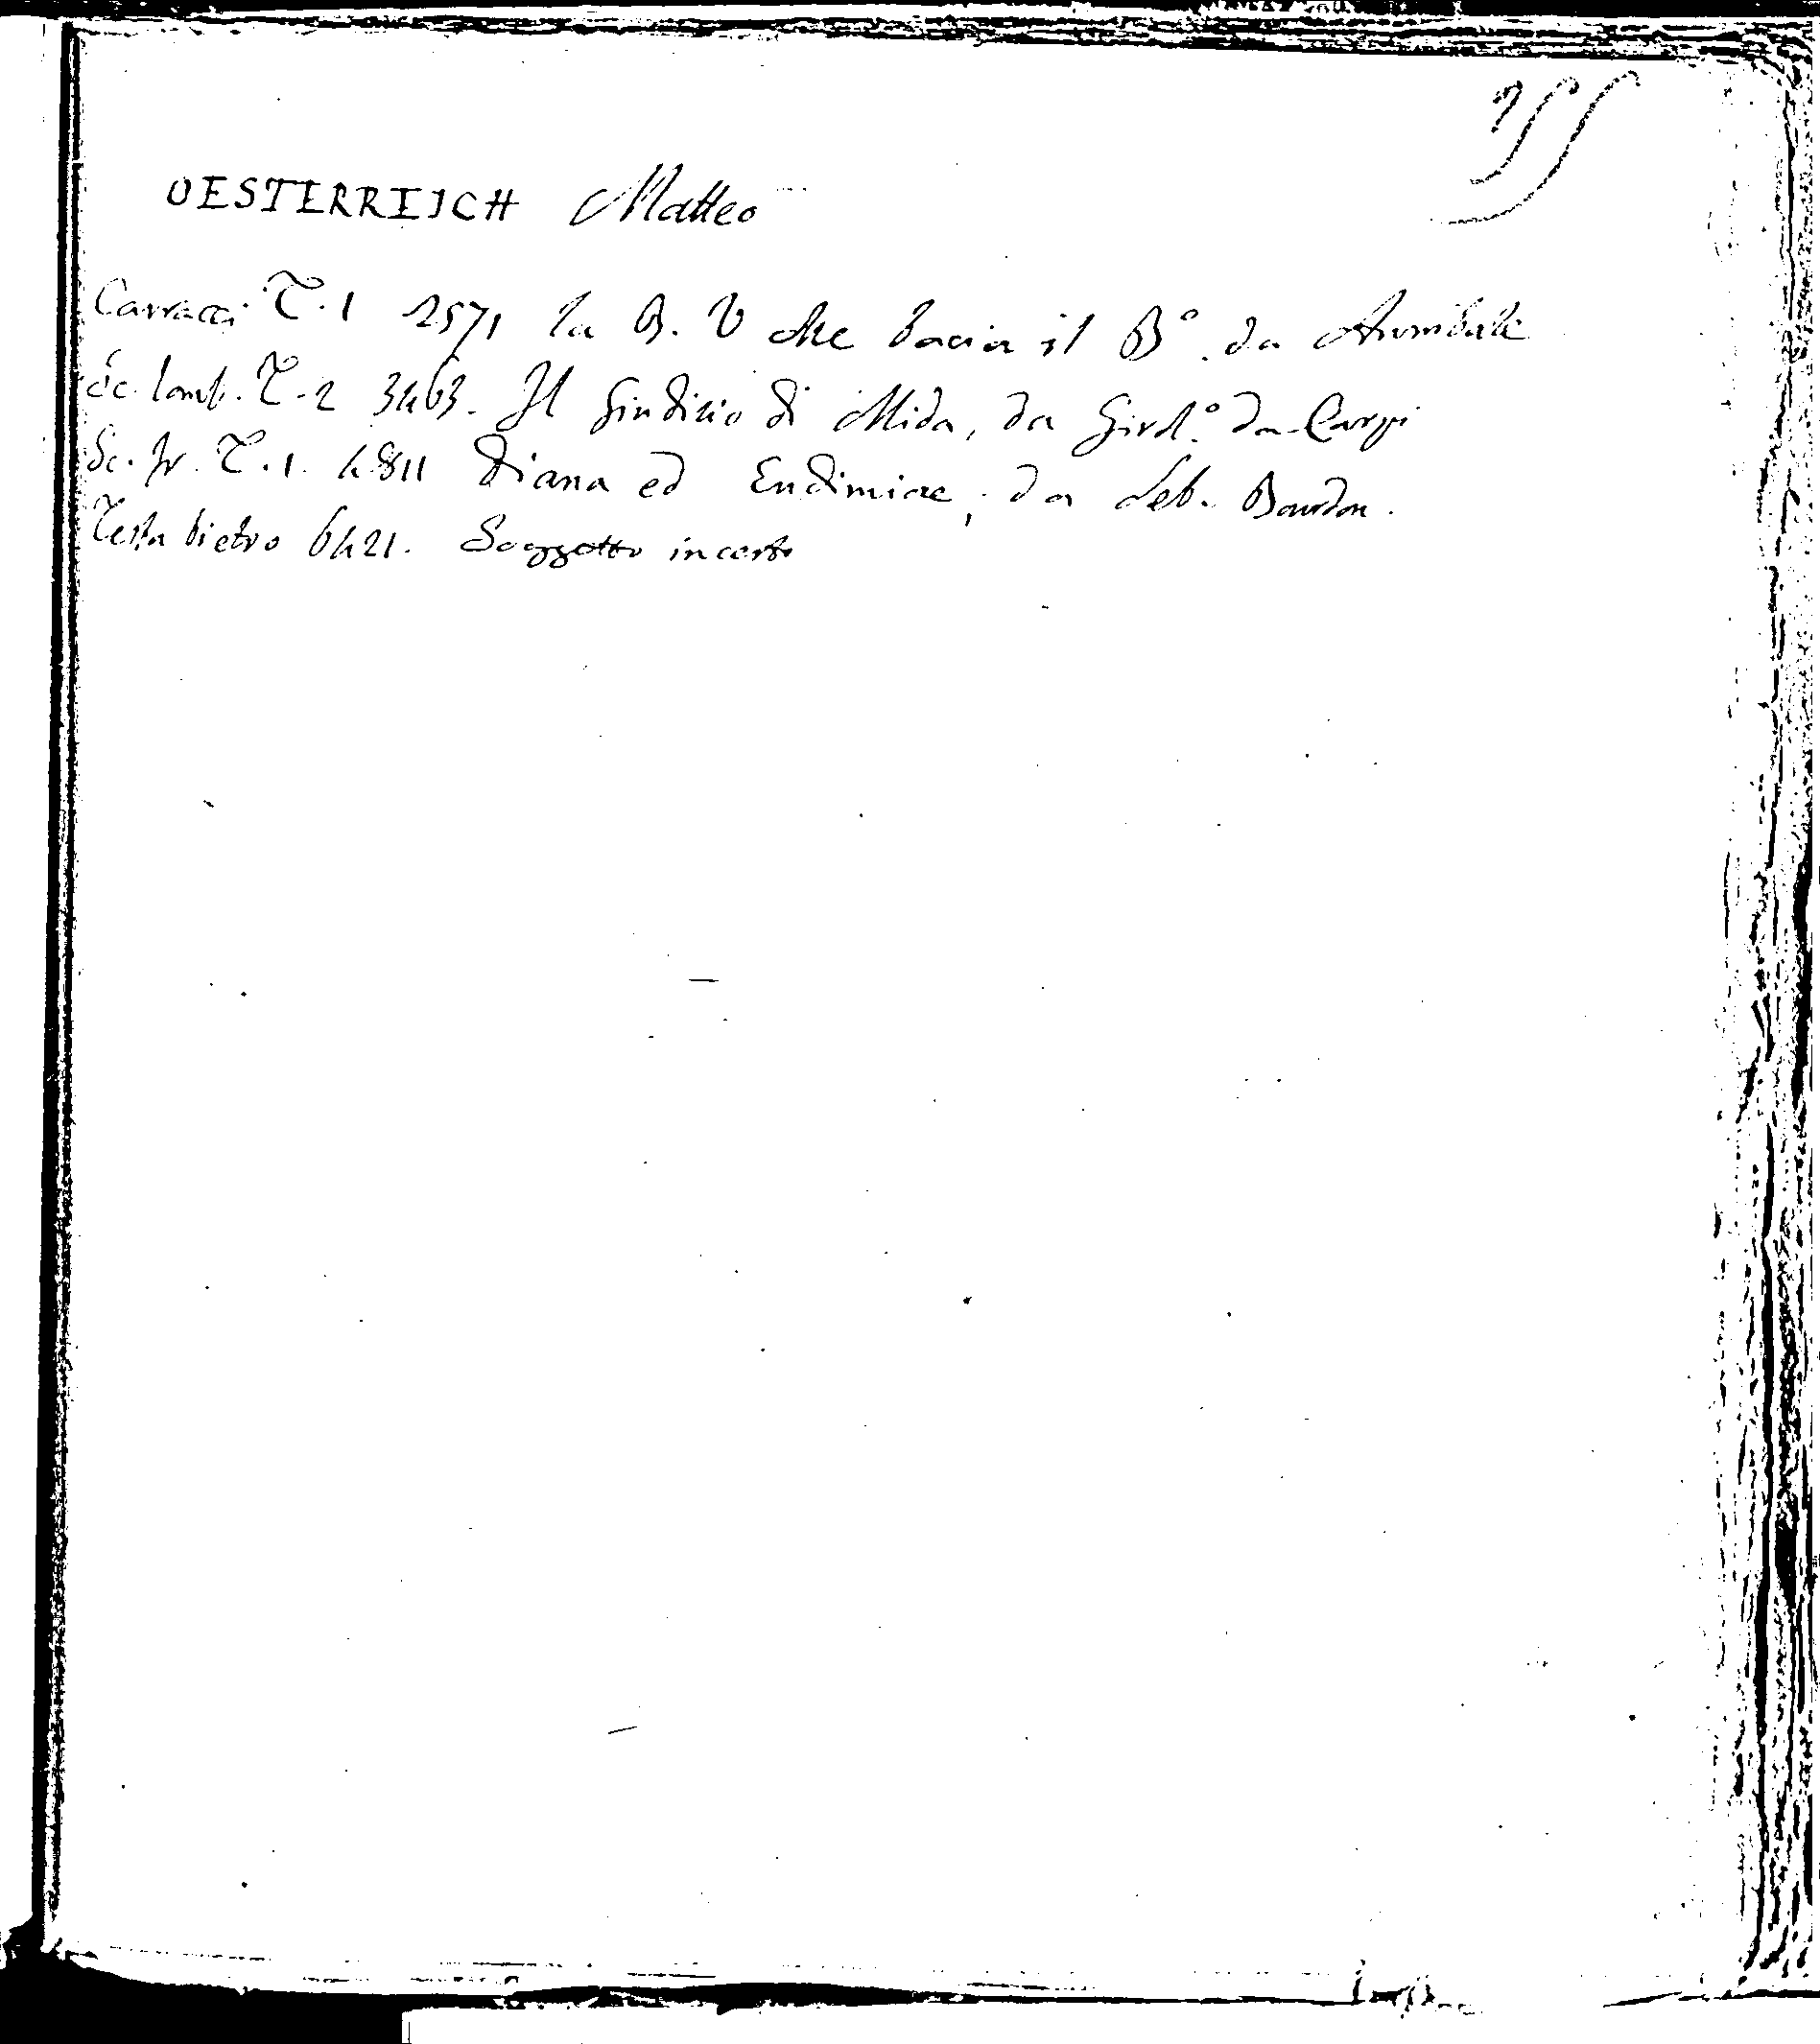 155
OESTERREIJCH Matteo
Carracci T. 1 2571 la B. V che bacia il B.º da Annibale
Sc. lomb. T. 2 3463. Il Giudizio di Mida, da Girol.º da Carpi
Sc. fr. T. 1. 4811 Diana ed Endimione, da Seb. Bourdon.
Testa Pietro 6421. Soggetto incerto